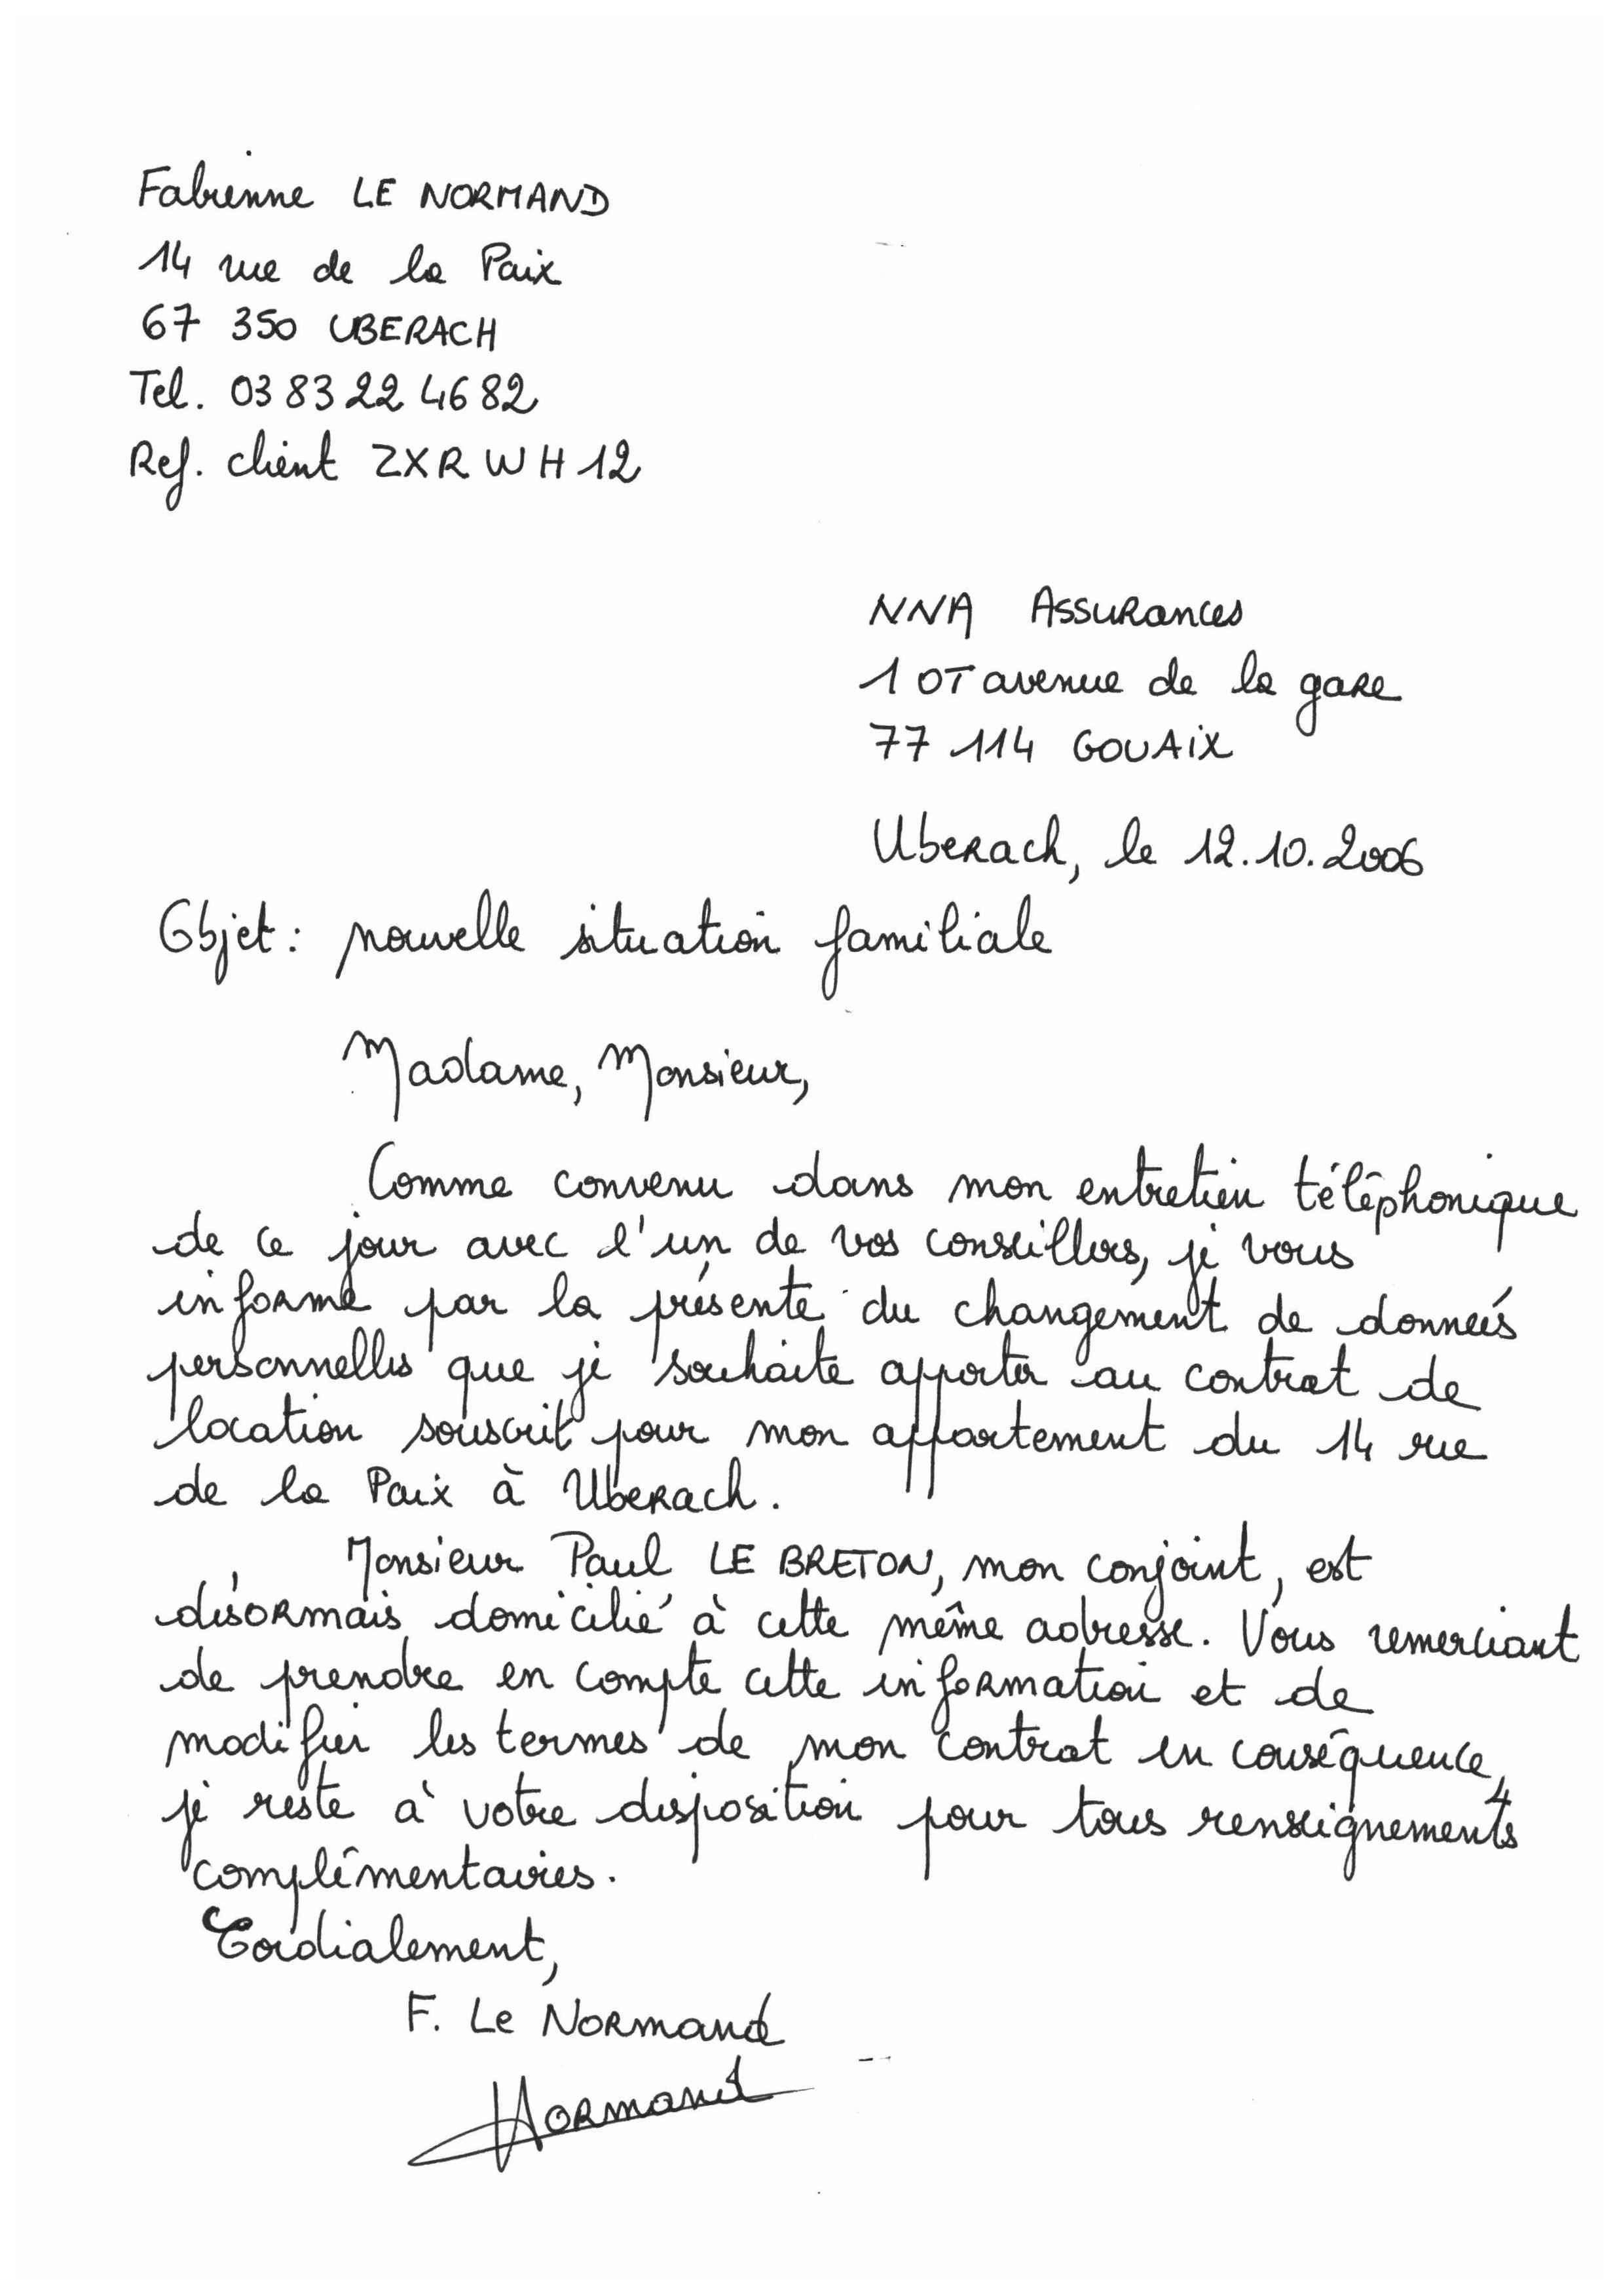 Fabienne LE NORMAND
14 rue de la Paix
67 350 UBERACH
Tel. 03 83 22 46 82
Ref. client ZXRWH12
NNA Assurances
1 OT avenue de la gare
77 114 GOUAIX
Uberach, le 12.10.2006
Objet : nouvelle situation familiale
Madame, Monsieur,
Comme convenu dans mon entretien téléphonique
de ce jour avec l'un de vos conseillers, je vous
informe par la présente du changement de données
personnelles que je souhaite apporter au contrat de
location souscrit pour mon appartement du 14 rue
de la Paix à Uberach.
Monsieur Paul LE BRETON, mon conjoint, est
désormais domicilié à cette même adresse. Vous remerciant
de prendre en compte cette information et de
modifier les termes de mon contrat en conséquence,
je reste à votre disposition pour tous renseignements
complémentaires.
Cordialement,
F. Le Normand
Normand